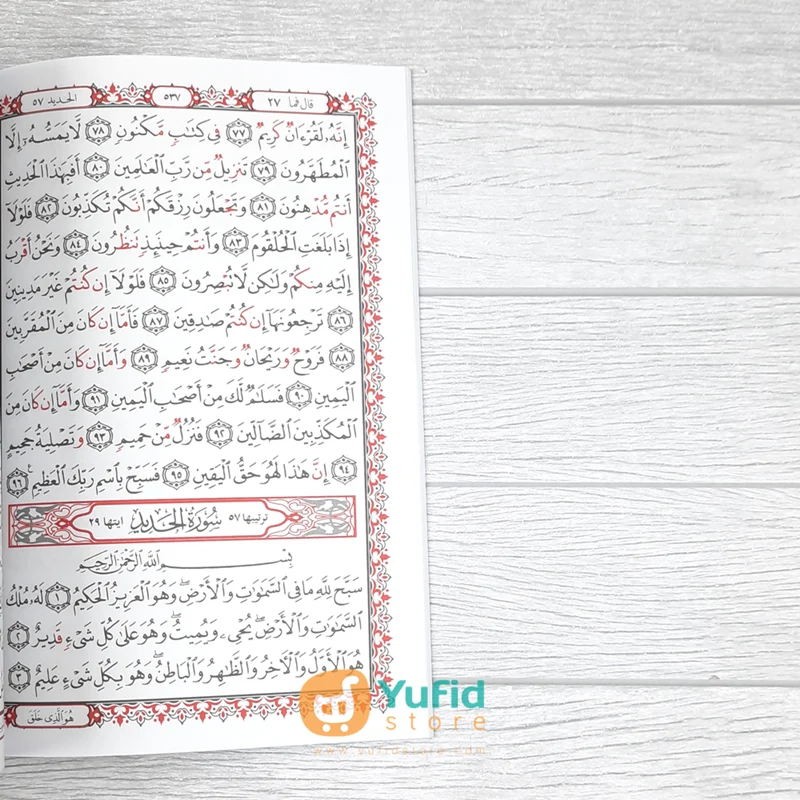 قال فما ٢٧
٥٣٧
الحديد ٥٧
إِنَّهُۥ لَقُرْءَانٌ كَرِيمٌ ٧٧ فِى كِتَٰبٍ مَّكْنُونٍ ٧٨ لَّا يَمَسُّهُۥٓ إِلَّا
ٱلْمُطَهَّرُونَ ٧٩ تَنزِيلٌ مِّن رَّبِّ ٱلْعَٰلَمِينَ ٨٠ أَفَبِهَٰذَا ٱلْحَدِيثِ
أَنتُم مُّدْهِنُونَ ٨١ وَتَجْعَلُونَ رِزْقَكُمْ أَنَّكُمْ تُكَذِّبُونَ ٨٢ فَلَوْلَآ
إِذَا بَلَغَتِ ٱلْحُلْقُومَ ٨٣ وَأَنتُمْ حِينَئِذٍ تَنظُرُونَ ٨٤ وَنَحْنُ أَقْرَبُ
إِلَيْهِ مِنكُمْ وَلَٰكِن لَّا تُبْصِرُونَ ٨٥ فَلَوْلَآ إِن كُنتُمْ غَيْرَ مَدِينِينَ
٨٦ تَرْجِعُونَهَآ إِن كُنتُمْ صَٰدِقِينَ ٨٧ فَأَمَّآ إِن كَانَ مِنَ ٱلْمُقَرَّبِينَ
٨٨ فَرَوْحٌ وَرَيْحَانٌ وَجَنَّتُ نَعِيمٍ ٨٩ وَأَمَّآ إِن كَانَ مِنْ أَصْحَٰبِ
ٱلْيَمِينِ ٩٠ فَسَلَٰمٌ لَّكَ مِنْ أَصْحَٰبِ ٱلْيَمِينِ ٩١ وَأَمَّآ إِن كَانَ مِنَ
ٱلْمُكَذِّبِينَ ٱلضَّآلِّينَ ٩٢ فَنُزُلٌ مِّنْ حَمِيمٍ ٩٣ وَتَصْلِيَةُ جَحِيمٍ
٩٤ إِنَّ هَٰذَا لَهُوَ حَقُّ ٱلْيَقِينِ ٩٥ فَسَبِّحْ بِٱسْمِ رَبِّكَ ٱلْعَظِيمِ ٩٦
ترتيبها ٥٧ سُورَةُ الحَدِيدِ آيتها ٢٩
بِسْمِ ٱللَّهِ ٱلرَّحْمَٰنِ ٱلرَّحِيمِ
سَبَّحَ لِلَّهِ مَا فِى ٱلسَّمَٰوَٰتِ وَٱلْأَرْضِ وَهُوَ ٱلْعَزِيزُ ٱلْحَكِيمُ ١ لَهُۥ مُلْكُ
ٱلسَّمَٰوَٰتِ وَٱلْأَرْضِ يُحْىِۦ وَيُمِيتُ وَهُوَ عَلَىٰ كُلِّ شَىْءٍ قَدِيرٌ ٢
هُوَ ٱلْأَوَّلُ وَٱلْءَاخِرُ وَٱلظَّٰهِرُ وَٱلْبَاطِنُ وَهُوَ بِكُلِّ شَىْءٍ عَلِيمٌ ٣
هُوَ الَّذِى خَلَقَ
Yufid
store
www.yufidstore.com